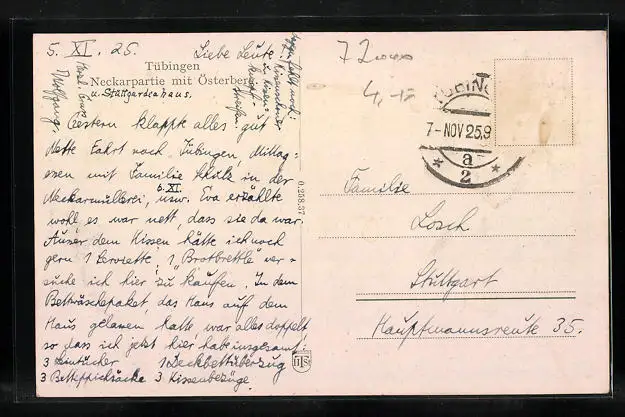 5. XI. 25.
Liebe Leute
Tübingen
Neckarpartie mit Österberg
u. Stuttgardeahaus.
Wolfgang.
Gestern klappte alles gut
Nette Fahrt nach Tübingen, Mittag-
essen mit Familie in der
6. XI.
Neckarmüllerei, usw. Eva erzählte
wohl, es war nett, dass sie da war.
Ausser dem Kissen hätte ich noch
gern 1 Serviette; 1 „Brotbrettle" ver-
suche ich hier zu kaufen. In dem
Bettwäschepaket, das Hans auf dem
Haus gelassen hatte war alles doppelt
so dass ich jetzt hier habe insgesamt:
3 Leintücher 1 Deckbettüberzug
3 Betteppichsäcke 3 Kissenbezüge.
0.258.37
72
4,-
TÜBINGEN
7-NOV 25.9
a
* 2 *
Familie
Losch
Stuttgart
Hauptmannsreute 35.